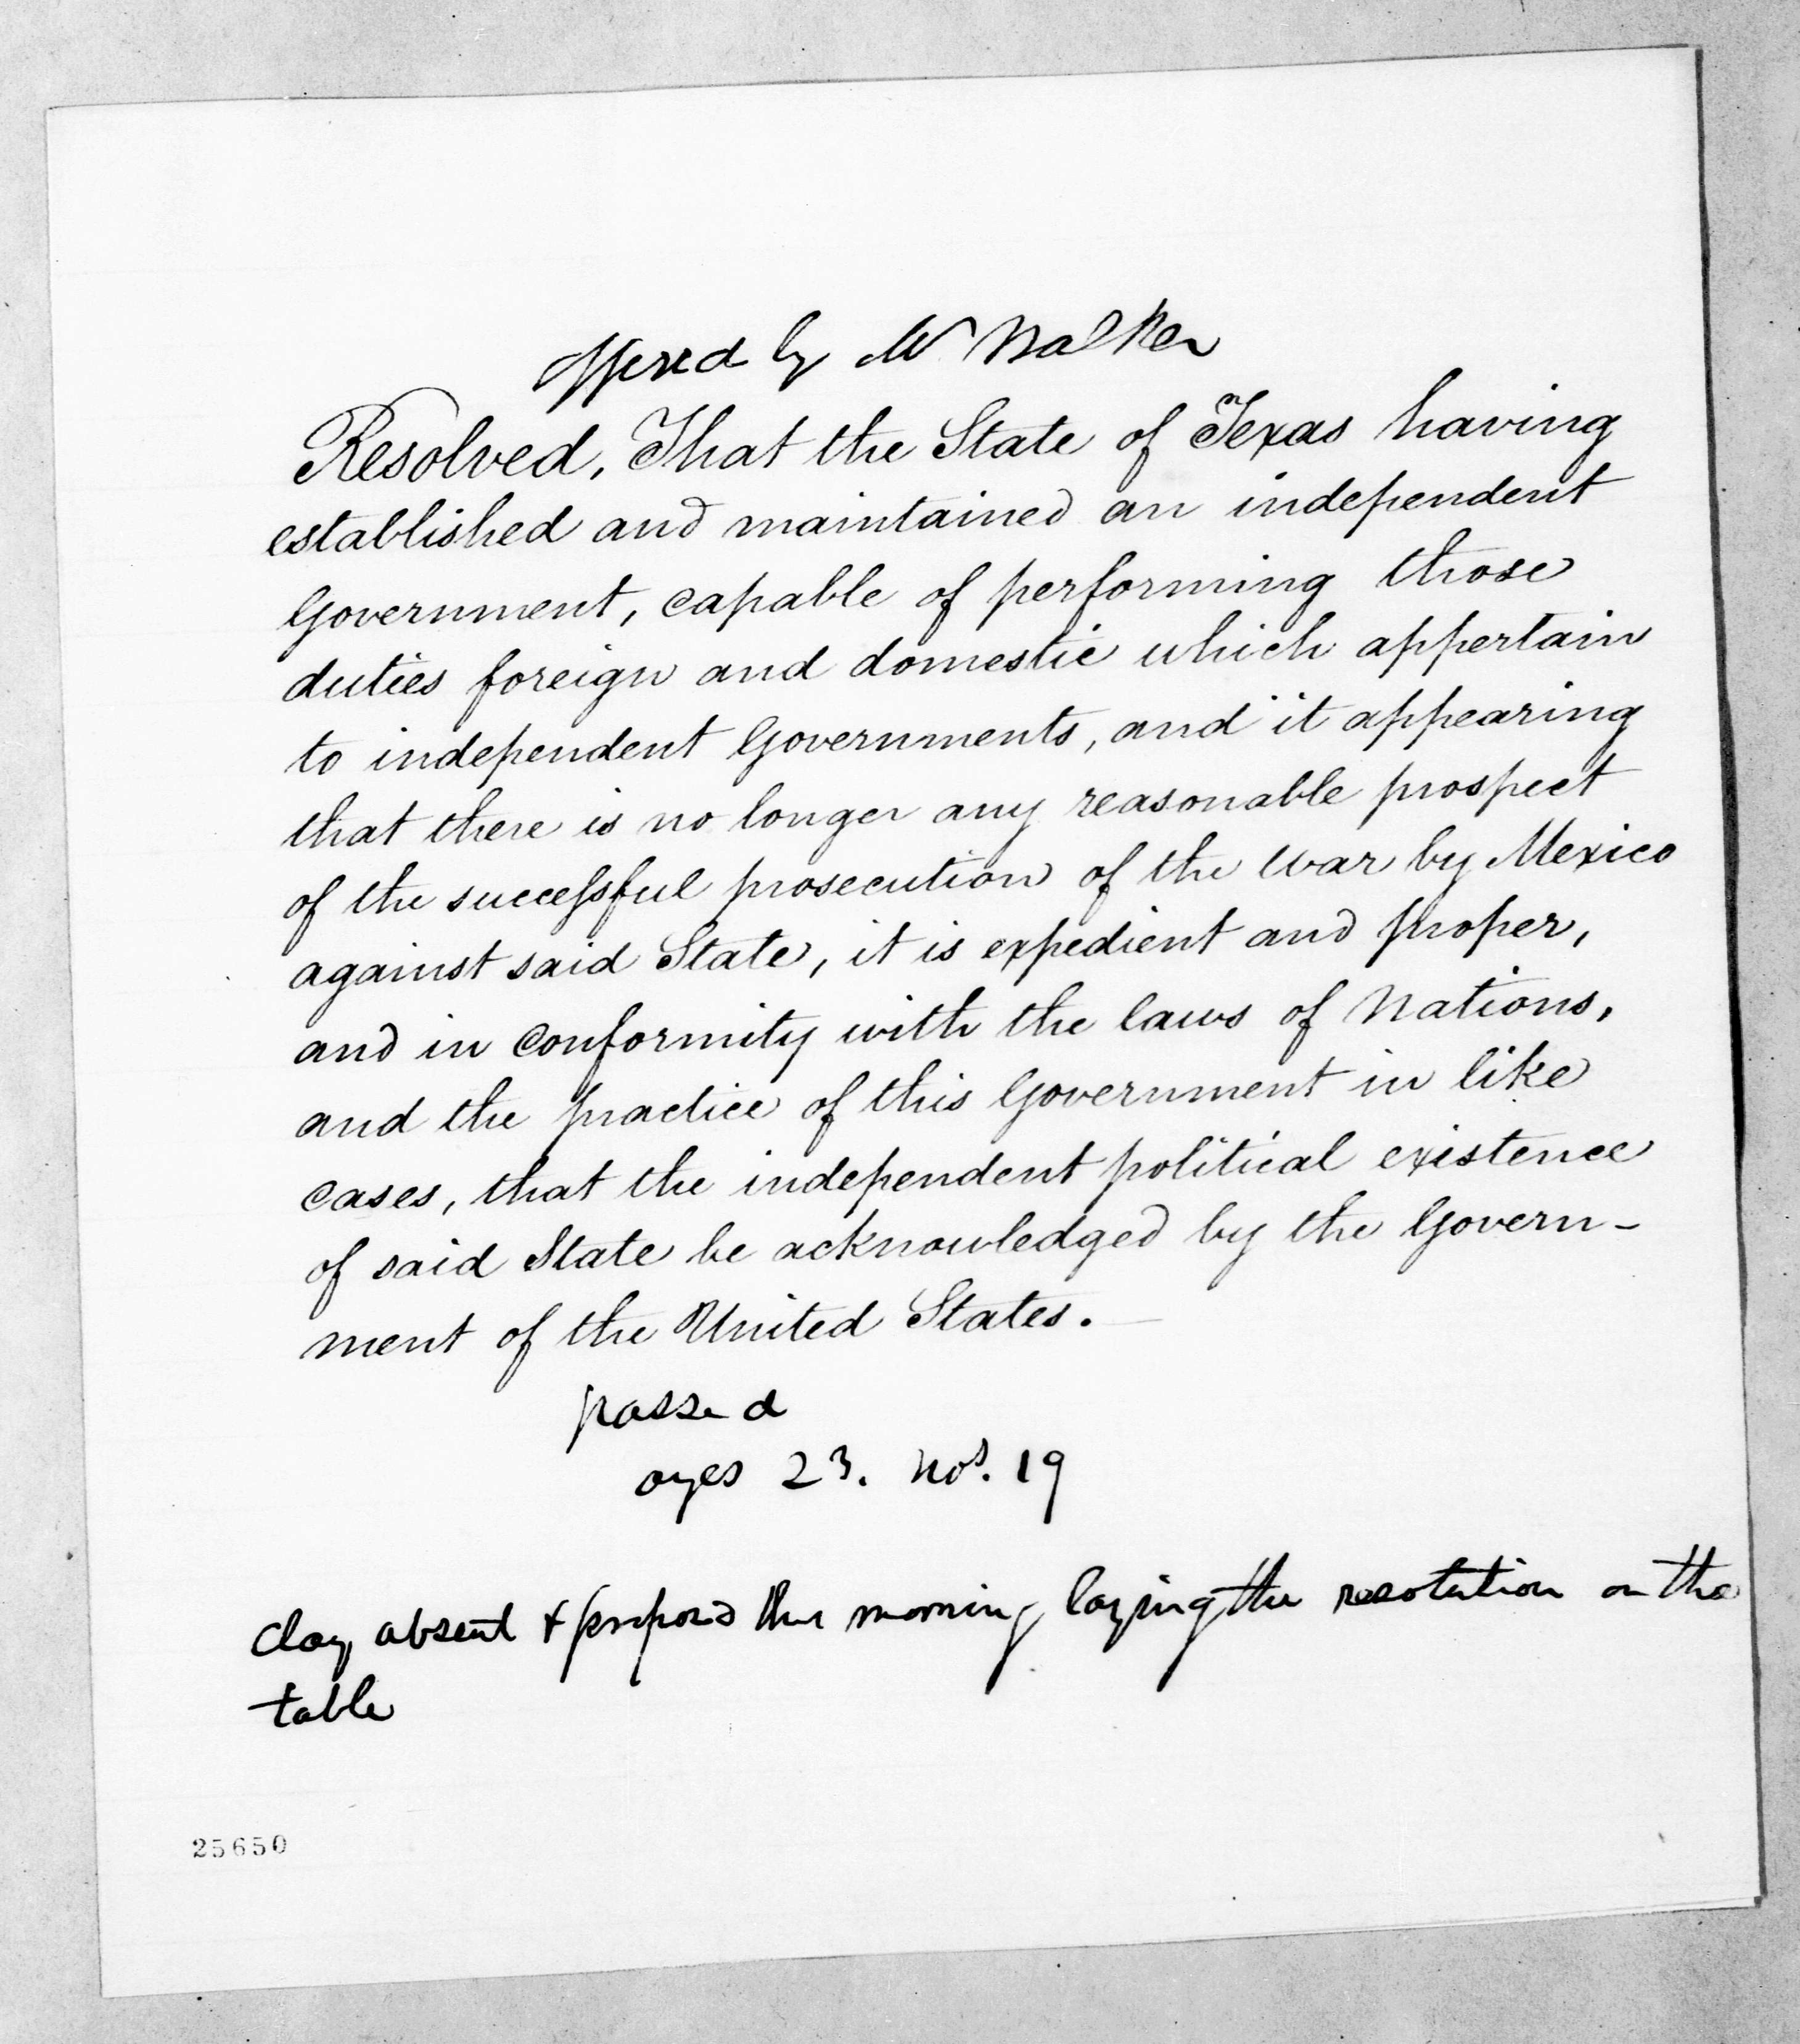 offered by Mr Walker
Resolved, That the State of Texas having
established and maintained an independent
Government, capable of performing those
duties foreign and domestic which appertain
to independent Governments, and it appearing
that there is no longer any reasonable prospect
of the successful prosecution of the war by Mexico
against said State, it is expedient and proper,
and in conformity with the laws of Nations,
and the practice of this Government in like
cases, that the independent political existence
of said State be acknowledged by the Govern-
ment of the United States.
passed
ayes 23. nos. 19
Clay absent & proposed this morning laying the resolution on the
table
25650